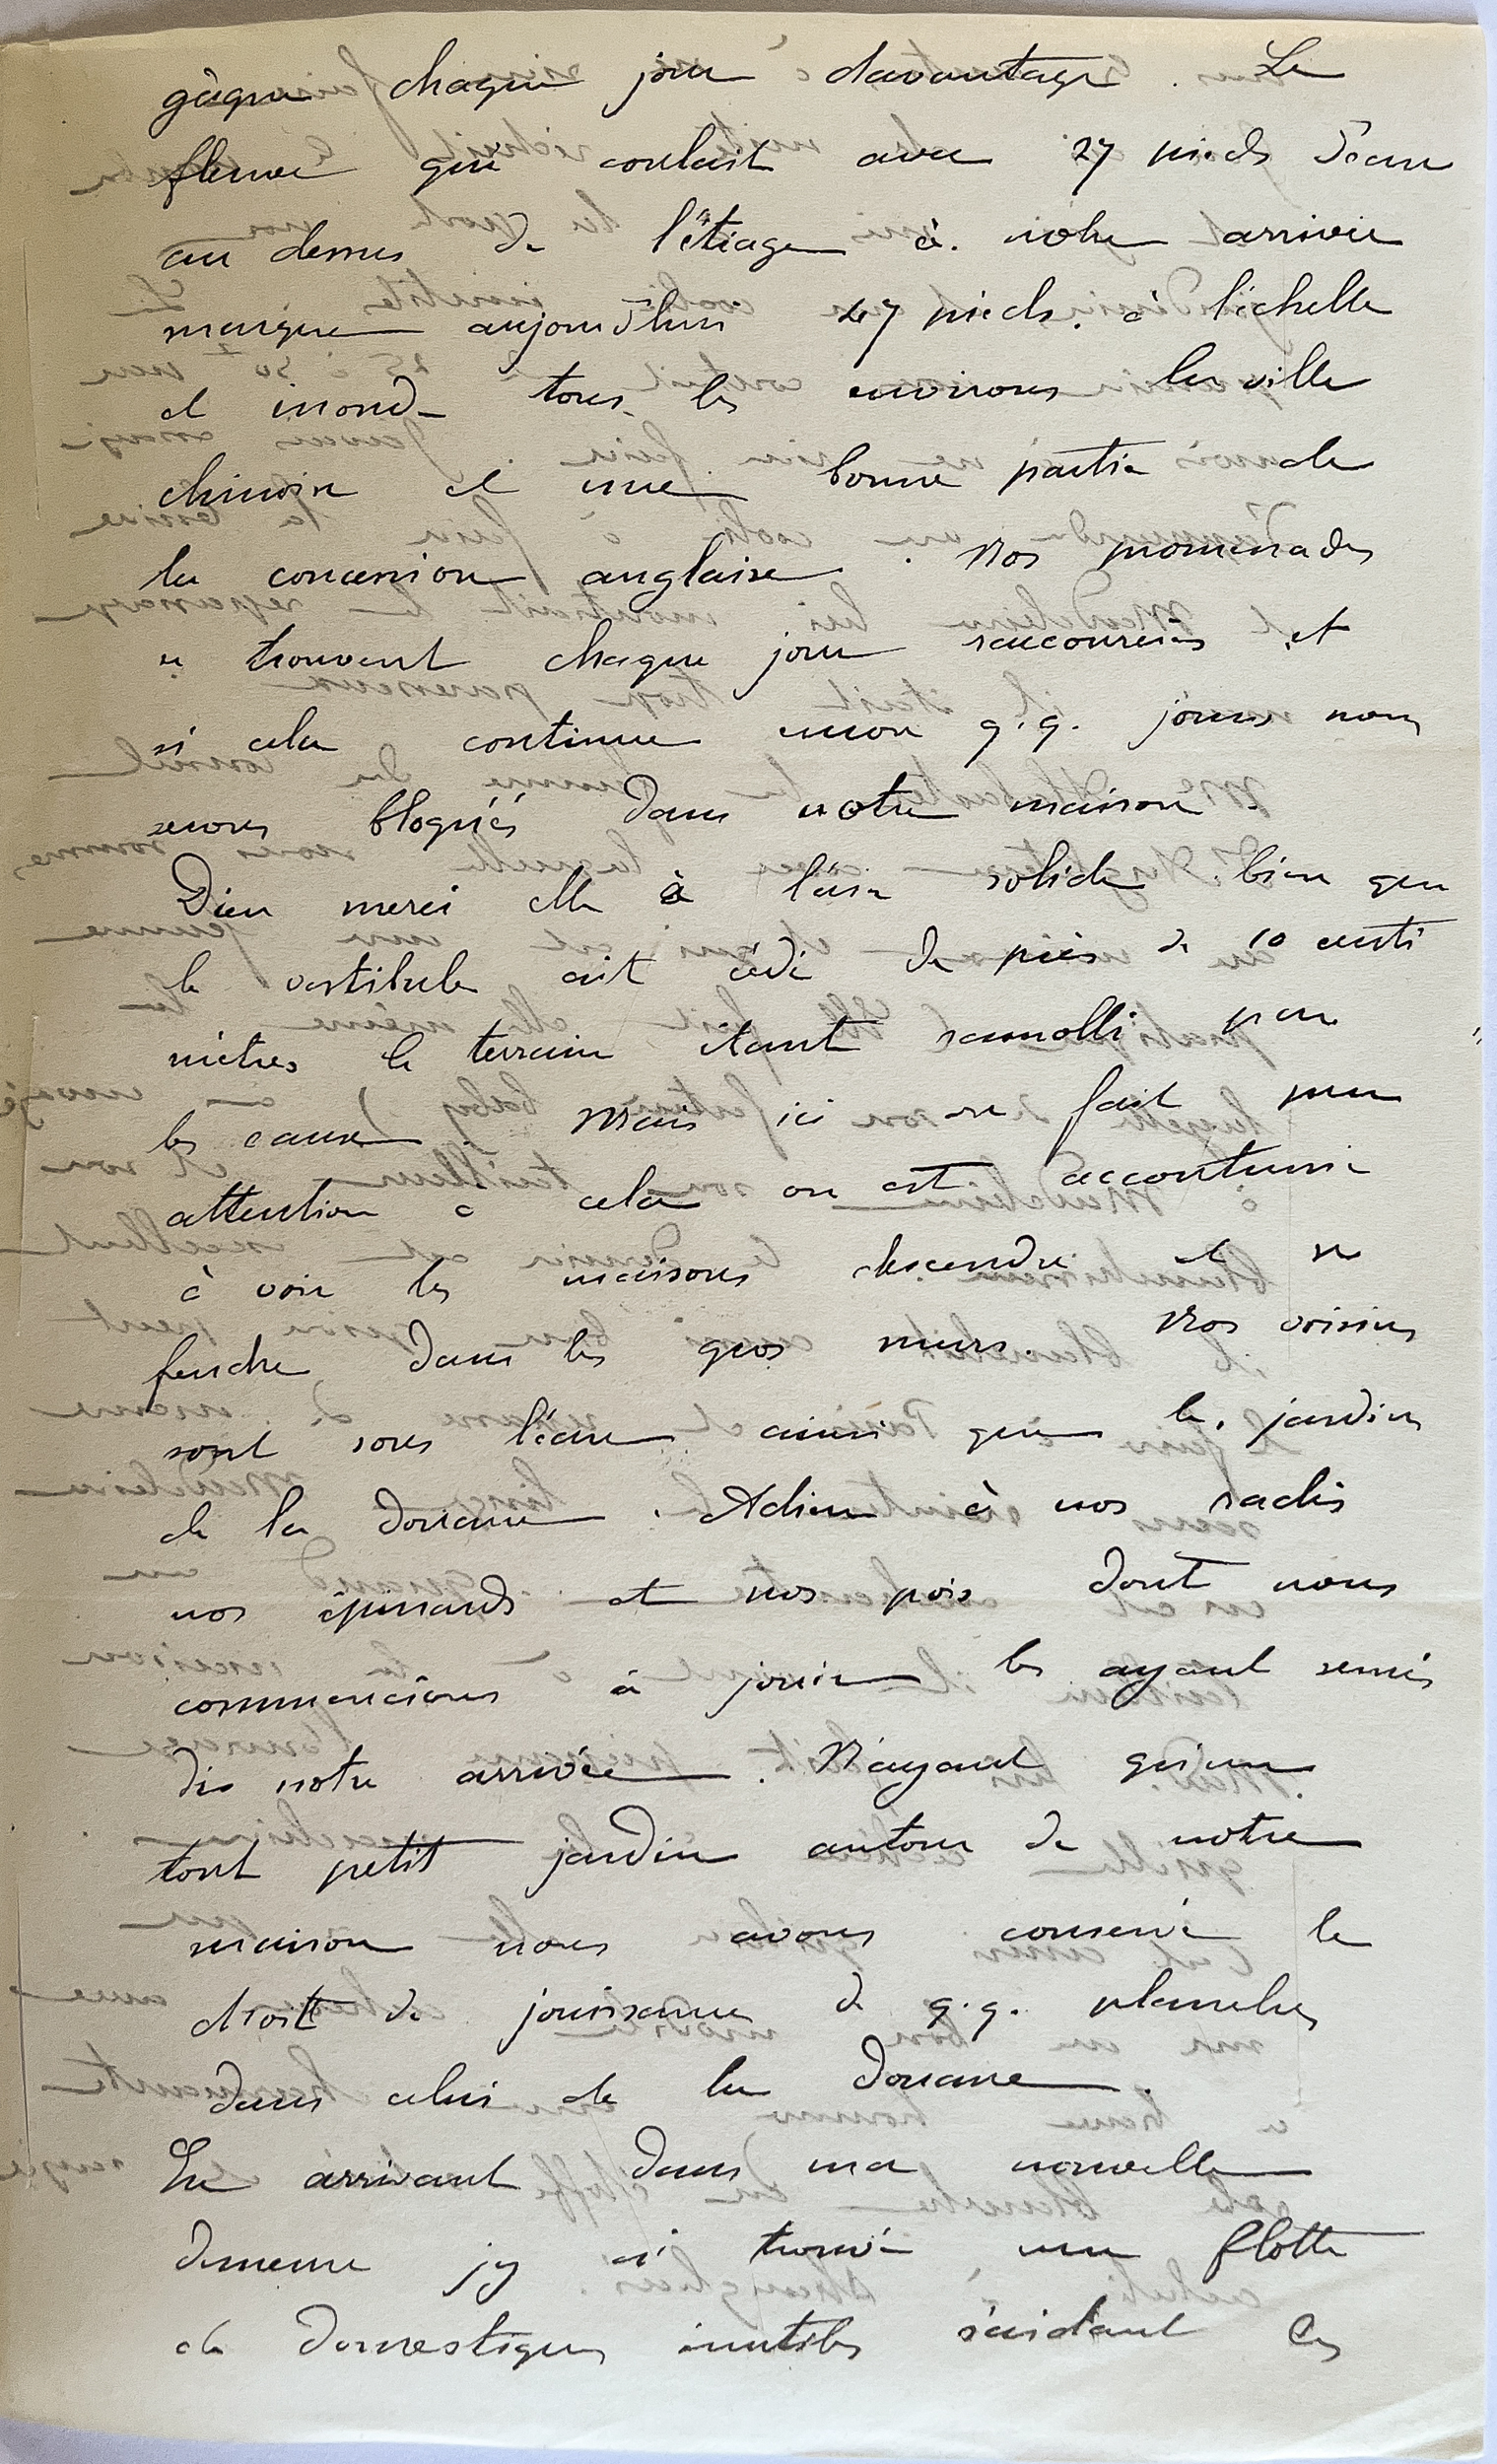 gagne chaque jour davantage. Le
fleuve qui coulait avec 27 pieds d'eau
au dessus de l'étiage à notre arrivée
marque aujourd'hui 47 pieds à l'échelle
et inonde tous les environs la ville
chinoise et une bonne partie de
la concession anglaise. Nos promenades
se trouvent chaque jour raccourcies et
si cela continue encore q.q. jours nous
serons bloqués dans notre maison.
Dieu merci elle a l'air solide bien que
le vestibule ait cédé de près de 10 centi
mètres le terrain étant ramolli par
les eaux. Mais ici on fait peu
attention à cela on est accoutumé
à voir les maisons descendre et se
fendre dans les gros murs. Nos voisins
sont sous l'eau ainsi que le jardin
de la douane. Adieu à nos radis
nos épinards et nos pois dont nous
commencions à jouir les ayant semés
dès notre arrivée. N'ayant qu'un
tout petit jardin autour de notre
maison nous avons conservé le
droit de jouissance de q.q. planches
dans celui de la douane.
En arrivant dans ma nouvelle
demeure j'y ai trouvé une flotte
de domestiques inutiles s'aidant les